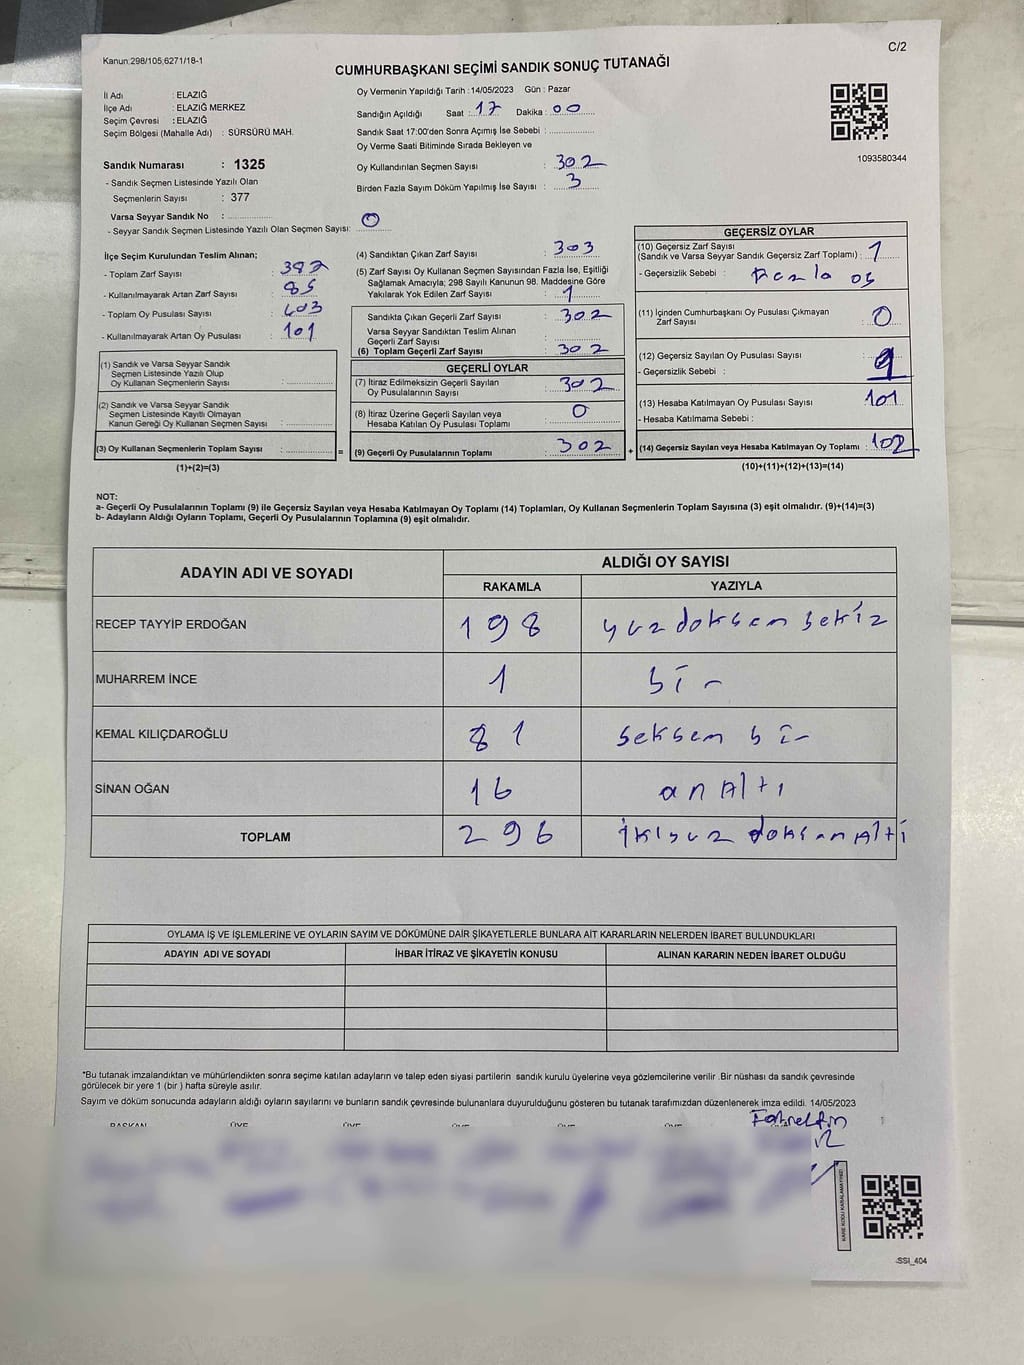 Kanun:298/105,6271/18-1
C/2
CUMHURBAŞKANI SEÇİMİ SANDIK SONUÇ TUTANAĞI
İl Adı : ELAZIĞ
İlçe Adı : ELAZIĞ MERKEZ
Seçim Çevresi : ELAZIĞ
Seçim Bölgesi (Mahalle Adı) : SÜRSÜRÜ MAH.
Sandık Numarası : 1325
- Sandık Seçmen Listesinde Yazılı Olan
Seçmenlerin Sayısı : 377
Varsa Seyyar Sandık No :
- Seyyar Sandık Seçmen Listesinde Yazılı Olan Seçmen Sayısı: 0
Oy Vermenin Yapıldığı Tarih :14/05/2023 Gün : Pazar
Sandığın Açıldığı Saat : 17 Dakika : 00
Sandık Saat 17:00'den Sonra Açımış İse Sebebi :
Oy Verme Saati Bitiminde Sırada Bekleyen ve
Oy Kullandırılan Seçmen Sayısı : 302
Birden Fazla Sayım Döküm Yapılmış İse Sayısı : 3
1093580344
İlçe Seçim Kurulundan Teslim Alınan;
- Toplam Zarf Sayısı : 387
- Kullanılmayarak Artan Zarf Sayısı : 85
- Toplam Oy Pusulası Sayısı : 403
- Kullanılmayarak Artan Oy Pusulası : 101
(1) Sandık ve Varsa Seyyar Sandık
Seçmen Listesinde Yazılı Olup
Oy Kullanan Seçmenlerin Sayısı :
(2) Sandık ve Varsa Seyyar Sandık
Seçmen Listesinde Kayıtlı Olmayan
Kanun Gereği Oy Kullanan Seçmen Sayısı :
(3) Oy Kullanan Seçmenlerin Toplam Sayısı :
(1)+(2)=(3)
=
(4) Sandıktan Çıkan Zarf Sayısı : 303
(5) Zarf Sayısı Oy Kullanan Seçmen Sayısından Fazla İse, Eşitliği
Sağlamak Amacıyla; 298 Sayılı Kanunun 98. Maddesine Göre
Yakılarak Yok Edilen Zarf Sayısı : 1
Sandıkta Çıkan Geçerli Zarf Sayısı : 302
Varsa Seyyar Sandıktan Teslim Alınan
Geçerli Zarf Sayısı :
(6) Toplam Geçerli Zarf Sayısı : 302
GEÇERLİ OYLAR
(7) İtiraz Edilmeksizin Geçerli Sayılan
Oy Pusulalarının Sayısı : 302
(8) İtiraz Üzerine Geçerli Sayılan veya
Hesaba Katılan Oy Pusulası Toplamı : 0
(9) Geçerli Oy Pusulalarının Toplamı : 302
+
GEÇERSİZ OYLAR
(10) Geçersiz Zarf Sayısı
(Sandık ve Varsa Seyyar Sandık Geçersiz Zarf Toplamı) : 1
- Geçersizlik Sebebi :
(11) İçinden Cumhurbaşkanı Oy Pusulası Çıkmayan
Zarf Sayısı : 0
(12) Geçersiz Sayılan Oy Pusulası Sayısı :
- Geçersizlik Sebebi :
(13) Hesaba Katılmayan Oy Pusulası Sayısı : 101
- Hesaba Katılmama Sebebi :
(14) Geçersiz Sayılan veya Hesaba Katılmayan Oy Toplamı : 102
(10)+(11)+(12)+(13)=(14)
NOT:
a- Geçerli Oy Pusulalarının Toplamı (9) ile Geçersiz Sayılan veya Hesaba Katılmayan Oy Toplamı (14) Toplamları, Oy Kullanan Seçmenlerin Toplam Sayısına (3) eşit olmalıdır. (9)+(14)=(3)
b- Adayların Aldığı Oyların Toplamı, Geçerli Oy Pusulalarının Toplamına (9) eşit olmalıdır.
ADAYIN ADI VE SOYADI
ALDIĞI OY SAYISI
RAKAMLA YAZIYLA
RECEP TAYYİP ERDOĞAN 198 yüzdoksen sekiz
MUHARREM İNCE 1 bir
KEMAL KILIÇDAROĞLU 81 seksen bir
SİNAN OĞAN 16 on Altı
TOPLAM 296 ikiyüz doksanAltı
OYLAMA İŞ VE İŞLEMLERİNE VE OYLARIN SAYIM VE DÖKÜMÜNE DAİR ŞİKAYETLERLE BUNLARA AİT KARARLARIN NELERDEN İBARET BULUNDUKLARI
ADAYIN ADI VE SOYADI İHBAR İTİRAZ VE ŞİKAYETİN KONUSU ALINAN KARARIN NEDEN İBARET OLDUĞU
*Bu tutanak imzalandıktan ve mühürlendikten sonra seçime katılan adayların ve talep eden siyasi partilerin sandık kurulu üyelerine veya gözlemcilerine verilir .Bir nüshası da sandık çevresinde
görülecek bir yere 1 (bir ) hafta süreyle asılır.
Sayım ve döküm sonucunda adayların aldığı oyların sayılarını ve bunların sandık çevresinde bulunanlara duyurulduğunu gösteren bu tutanak tarafımızdan düzenlenerek imza edildi. 14/05/2023
BAŞKAN ÜYE ÜYE ÜYE ÜYE ÜYE
KARE KODU KARALAMAYINIZ!
SSI_404